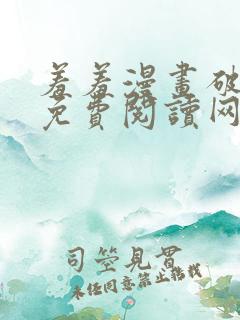 羞羞漫畫破
免費閱讀网
司空見貫
未经同意禁止转载